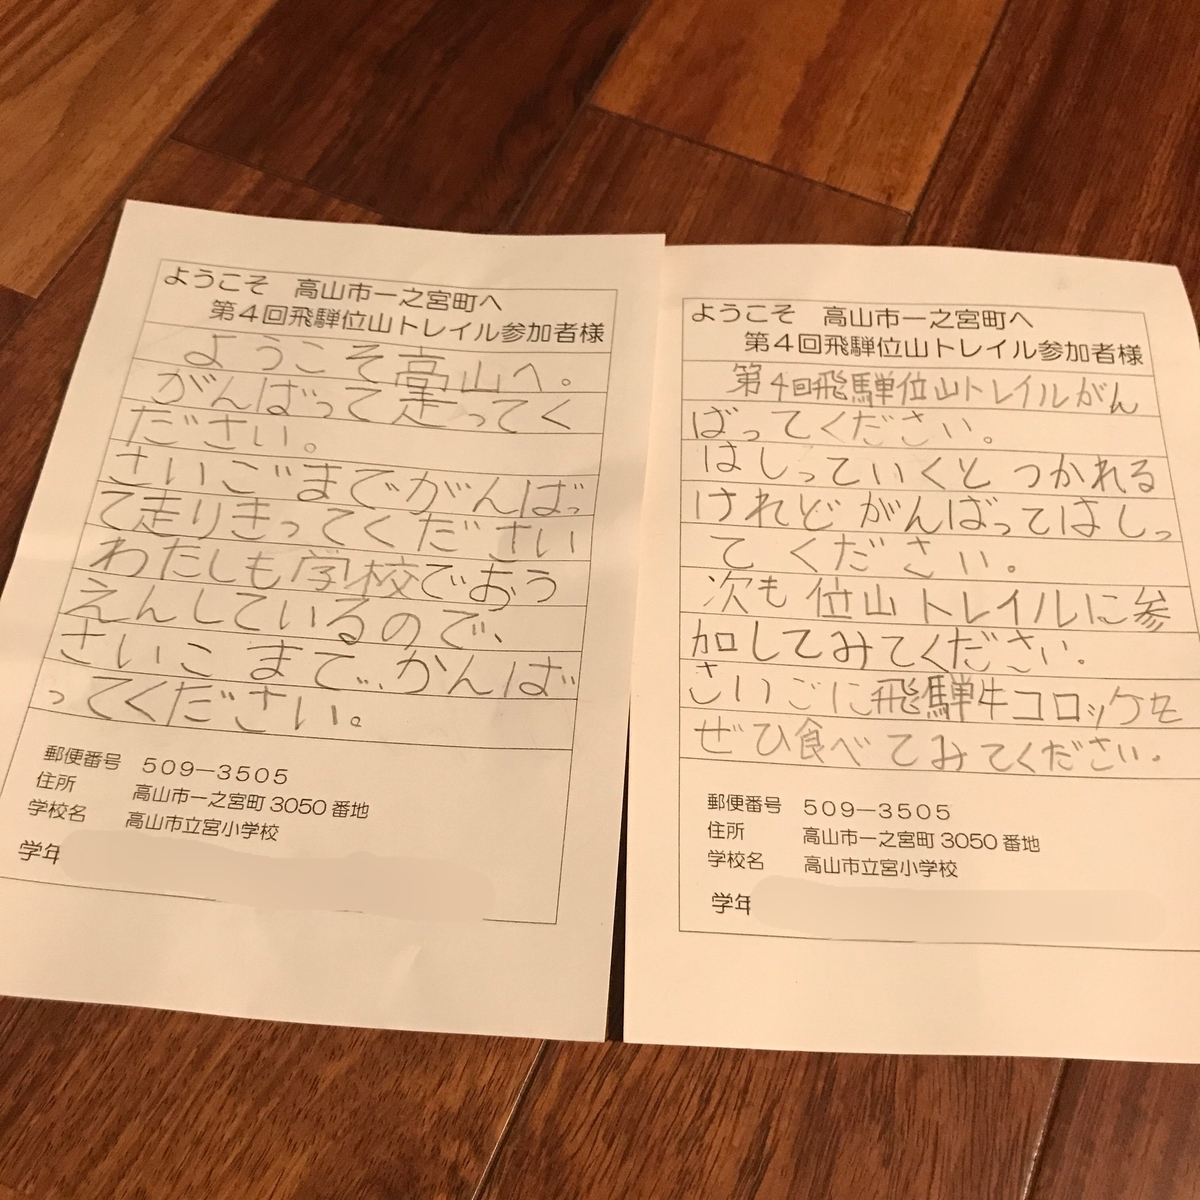 ようこそ　高山市一之宮町へ
第4回飛騨位山トレイル参加者様
ようこそ高山へ。
がんばって走ってく
ださい。
さいごまでがんばっ
て走りきってください
わたしも学校でおう
えんしているので、
さいごまで、がんば
ってください。
郵便番号　509－3505
住所　高山市一之宮町3050番地
学校名　高山市立宮小学校
学年
ようこそ　高山市一之宮町へ
第4回飛騨位山トレイル参加者様
第4回飛騨位山トレイルがん
ばってください。
はしっていくとつかれる
けれどがんばってはしっ
てください。
次も位山トレイルに参
加してみてください。
さいごに飛騨牛コロッケを
ぜひ食べてみてください。
郵便番号　509－3505
住所　高山市一之宮町3050番地
学校名　高山市立宮小学校
学年